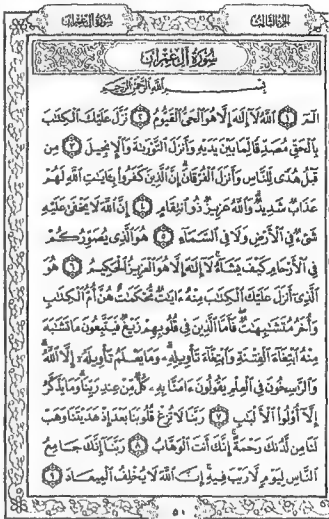 الجزء الثالث
سورة آل عمران
سورة آل عمران
بسم الله الرحمن الرحيم
الٓمٓ ١ ٱللَّهُ لَآ إِلَٰهَ إِلَّا هُوَ ٱلْحَىُّ ٱلْقَيُّومُ ٢ نَزَّلَ عَلَيْكَ ٱلْكِتَٰبَ
بِٱلْحَقِّ مُصَدِّقًا لِّمَا بَيْنَ يَدَيْهِ وَأَنزَلَ ٱلتَّوْرَىٰةَ وَٱلْإِنجِيلَ ٣ مِن
قَبْلُ هُدًى لِّلنَّاسِ وَأَنزَلَ ٱلْفُرْقَانَ إِنَّ ٱلَّذِينَ كَفَرُوا۟ بِـَٔايَٰتِ ٱللَّهِ لَهُمْ
عَذَابٌ شَدِيدٌ وَٱللَّهُ عَزِيزٌ ذُو ٱنتِقَامٍ ٤ إِنَّ ٱللَّهَ لَا يَخْفَىٰ عَلَيْهِ
شَىْءٌ فِى ٱلْأَرْضِ وَلَا فِى ٱلسَّمَآءِ ٥ هُوَ ٱلَّذِى يُصَوِّرُكُمْ
فِى ٱلْأَرْحَامِ كَيْفَ يَشَآءُ لَآ إِلَٰهَ إِلَّا هُوَ ٱلْعَزِيزُ ٱلْحَكِيمُ ٦ هُوَ
ٱلَّذِىٓ أَنزَلَ عَلَيْكَ ٱلْكِتَٰبَ مِنْهُ ءَايَٰتٌ مُّحْكَمَٰتٌ هُنَّ أُمُّ ٱلْكِتَٰبِ
وَأُخَرُ مُتَشَٰبِهَٰتٌ فَأَمَّا ٱلَّذِينَ فِى قُلُوبِهِمْ زَيْغٌ فَيَتَّبِعُونَ مَا تَشَٰبَهَ
مِنْهُ ٱبْتِغَآءَ ٱلْفِتْنَةِ وَٱبْتِغَآءَ تَأْوِيلِهِۦ وَمَا يَعْلَمُ تَأْوِيلَهُۥٓ إِلَّا ٱللَّهُ
وَٱلرَّٰسِخُونَ فِى ٱلْعِلْمِ يَقُولُونَ ءَامَنَّا بِهِۦ كُلٌّ مِّنْ عِندِ رَبِّنَا وَمَا يَذَّكَّرُ
إِلَّآ أُو۟لُوا۟ ٱلْأَلْبَٰبِ ٧ رَبَّنَا لَا تُزِغْ قُلُوبَنَا بَعْدَ إِذْ هَدَيْتَنَا وَهَبْ
لَنَا مِن لَّدُنكَ رَحْمَةً إِنَّكَ أَنتَ ٱلْوَهَّابُ ٨ رَبَّنَآ إِنَّكَ جَامِعُ
ٱلنَّاسِ لِيَوْمٍ لَّا رَيْبَ فِيهِ إِنَّ ٱللَّهَ لَا يُخْلِفُ ٱلْمِيعَادَ ٩
٥٠